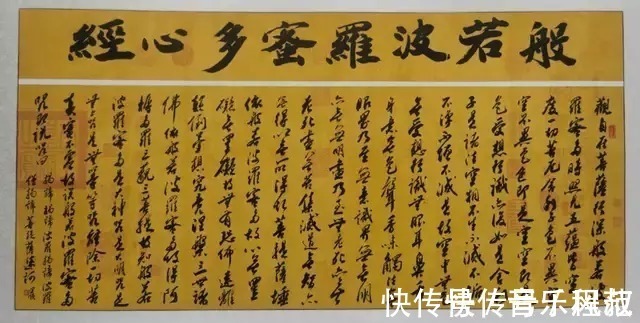 般若波羅蜜多心經
觀自在菩薩行深般若波
羅蜜多時照見五蘊皆空
度一切苦厄舍利子色不異空
空不異色色即是空空即是
色受想行識亦復如是舍利
子是諸法空相不生不滅不垢
不淨不增不減是故空中無
色無受想行識無眼耳鼻舌
身意無色聲香味觸法無
眼界乃至無意識界無無明
亦無無明盡乃至無老死亦無
老死盡無苦集滅道無智亦
無得以無所得故菩提薩埵
依般若波羅蜜多故心無罣
礙無罣礙故無有恐怖遠離
顛倒夢想究竟涅槃三世諸
佛依般若波羅蜜多故得阿
耨多羅三藐三菩提故知般若
波羅蜜多是大神咒是大明咒是
無上咒是無等等咒能除一切苦
真實不虛故說般若波羅蜜多
咒即說咒曰揭諦揭諦波羅揭諦波羅
僧揭諦菩提薩婆訶
快传号